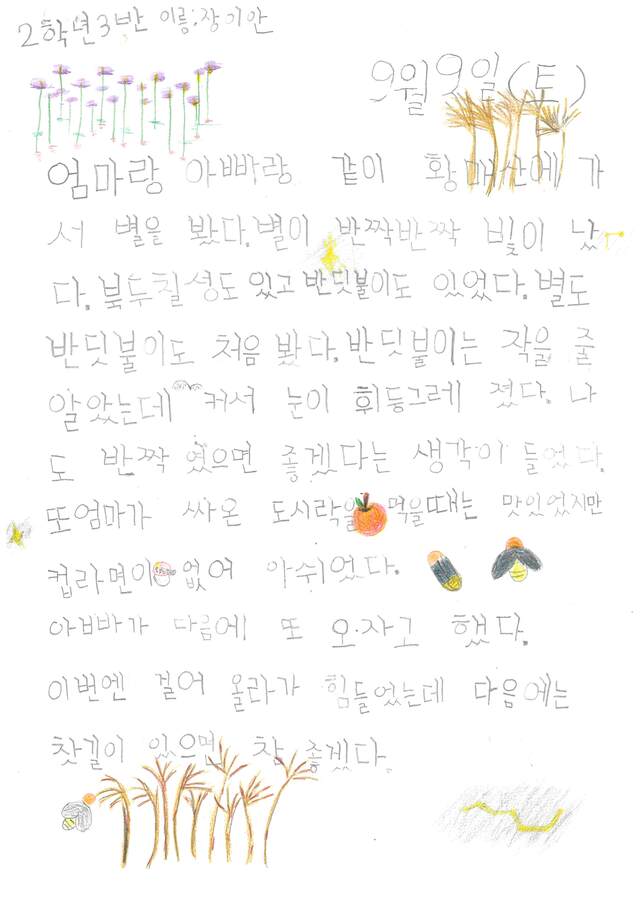 2학년3반 이름:장이안
9월9일(토)
엄마랑 아빠랑 같이 황매산에 가
서 별을 봤다.별이 반짝반짝 빛이 났
다.북두칠성도 있고 반딧불이도 있었다.별도
반딧불이도 처음 봤다.반딧불이는 작을 줄
알았는데 커서 눈이 휘둥그레 졌다. 나
도 반짝 였으면 좋겠다는 생각이 들었다.
또엄마가 싸온 도시락을 먹을때는 맛있었지만
컵라면이 없어 아쉬었다.
아빠가 다음에 또 오자고 했다.
이번엔 걸어 올라가 힘들었는데 다음에는
찻길이 있으면 참 좋겠다.